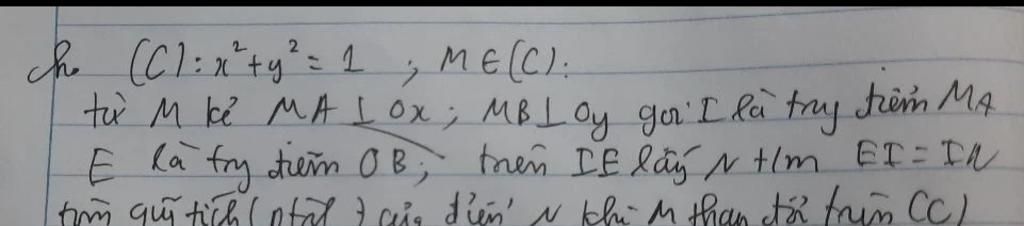 cho (C): x² + y² = 1 ; M ∈ (C).
từ M kẻ MA ⊥ Ox ; MB ⊥ Oy gọi I là trg điểm MA
E là trg điểm OB; trên IE lấy N t/m EI = IN
tìm quỹ tích ( ) của điểm N khi M thay đổi trên (C)